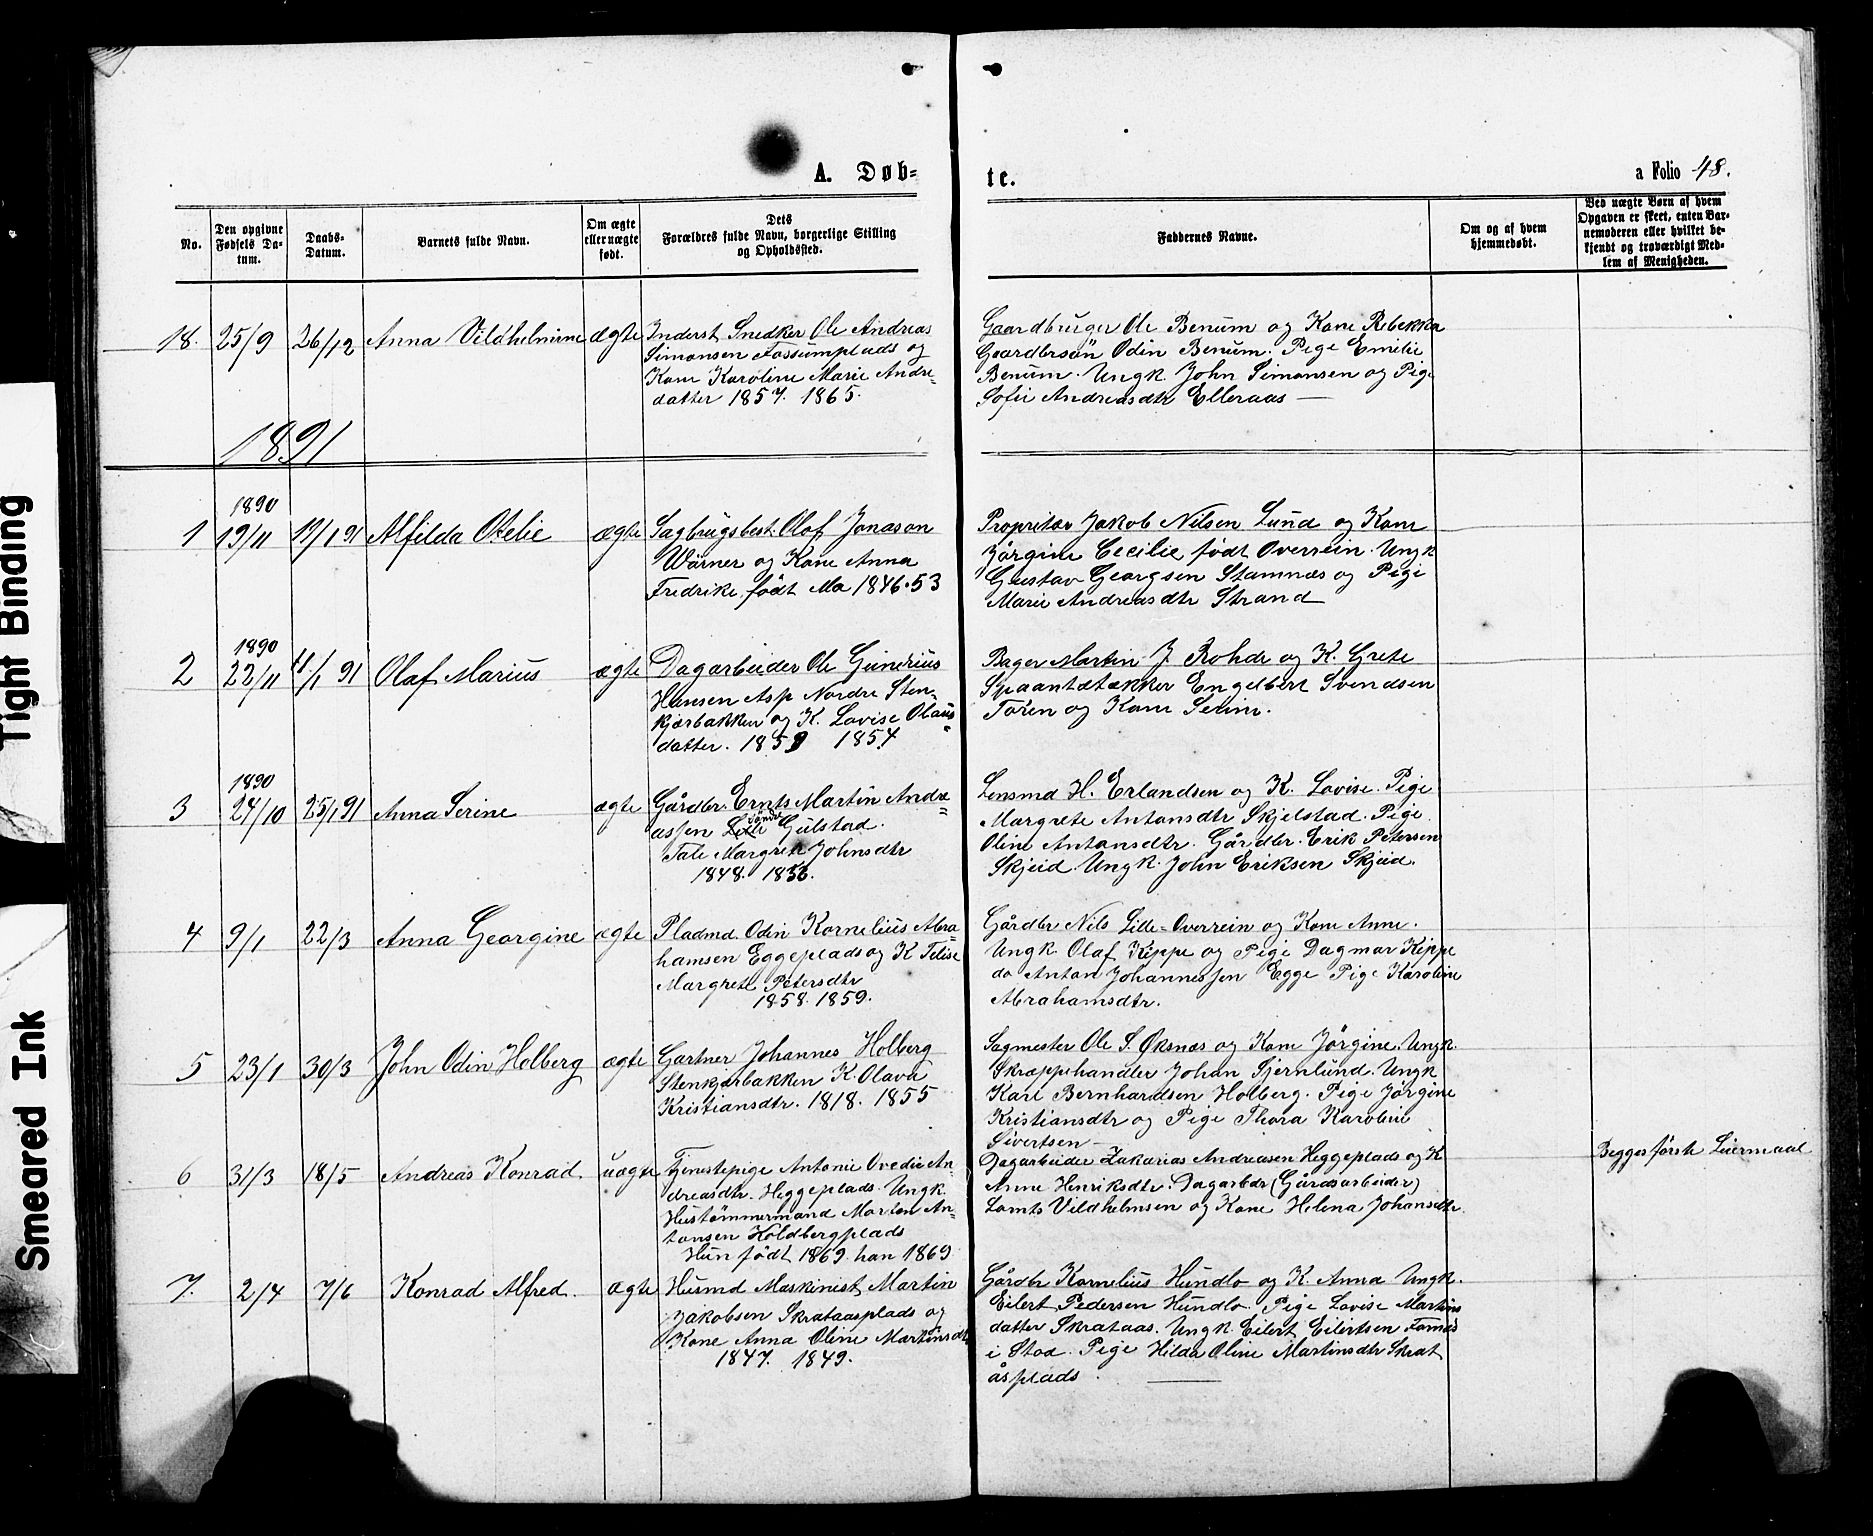 Tight Binding
Smeared Ink
A. Døb-
te.
a Folio 48.
No.
Den opgivne
Fødsels Da-
tum.
Daabs-
Datum.
Barnets fulde Navn.
Om ægte
eller uægte
født.
Dets
Forældres fulde Navn, borgerlige Stilling
og Opholdssted.
Faddernes Navne.
Om og af hvem
hjemmedøbt.
Ved uægte Børn af hvem
Opgaven er skeet, enten Bar-
nemoderen eller hvilket be-
kjendt og troværdigt Med-
lem af Menigheden.
18. 25/9 26/12 Anna Vildhelmine ægte
Inderst Snedker Ole Andreas
Simonsen Fossumplads og
Kone Karoline Marie Andre-
datter 1857. 1865.
Gaardbruger Ole Benum og Kone Rebekka
Gaardbrsön Odin Benum. Pige Emilie
Benum. Ungk. John Simonsen og Pige
Sofie Andreasdtr Elleraas
1891
1 1890 19/11 19/1 91 Alfilda Otelie ægte
Sagbrugsbest. Olof Jonason
Wärner og Kone Anna
Fredrike født Mo 1846. 53
Propritær Jakob Nilsen Lund og Kone
Jörgine Cecilie født Overrein. Ungk
Gustav Georgsen Stamnæs og Pige
Marie Andreasdtr Strand
2 1890 22/11 11/1 91 Olaf Marius ægte
Dagarbeider Ole Gunerius
Hansen Asp Nordre Sten-
kjærbakken og K. Lovise Olaus-
datter. 1859 1854
Bager Martin J. Rohde og K. Grete
Spaantækker Engelbert Svendsen
Toren og Kone Serine.
3 1890 24/10 25/1 91 Anna Serine ægte
Gårdbr. Ernts Martin Andre-
assen Lille Söndre Gulstad.
Tale Margrete Johnsdtr
1848. 1856.
Lensmd H. Erlandsen og K. Lovise. Pige
Margrete Antonsdtr Skjelstad. Pige
Oline Antonsdtr. Gårdbr. Erik Petersen
Skjeid. Ungk. John Eriksen Skjeid.
4 9/1 22/3 Anna Georgine ægte
Pladmd. Odin Kornelius Abra-
hamsen Eggeplads og K Telise
Margrete Petersdtr
1858. 1859.
Gårdbr Nils Lille-Overrein og Kone Anne.
Ungk Olaf Kippe og Pige Dagmar Kippe
do Anton Johannessen Egge Pige Karoline
Abrahamsdtr.
5 23/1 30/3 John Odin Holberg ægte
Gartner Johannes Holberg
Stenkjærbakken K Olava
Kristiansdtr. 1818. 1855
Sagmester Ole S. Øksnæs og Kone Jörgine. Ungk.
Skræppehandler Johan Stjernlund. Ungk
Karl Bernhardsen Holberg. Pige Jörgine
Kristiansdtr og Pige Thora Karoline
Sivertsen
6 31/3 18/5 Andreas Konrad uægte
Tjenestepige Antonie Ovedie An-
dreasdtr. Heggeplads. Ungk.
Hustömmermand Morten An-
tonsen Koldbergplads
Hun født 1869. han 1869
Dagarbeider Zakarias Andreasen Heggeplads og K
Anne Henriksdtr. Dagarbdr (Gårdsarbeider)
Lornts Vildhelmsen og Kone Helena Johansdtr.
Begges förste Leiermaal
7. 2/4 7/6 Konrad Alfred. ægte
Husmd Maskinist Martin
Jakobsen Skrataasplads og
Kone Anna Oline Martinsdtr
1847. 1849.
Gårdbr Kornelius Hundlo og K. Anna Ungk.
Eilert Pedersen Hundlo. Pige Lovise Martins
datter Skrataas. Ungk. Eilert Eilertsen Fornes
i Stod. Pige Hilda Oline Martinsdtr Skrat
åsplads.